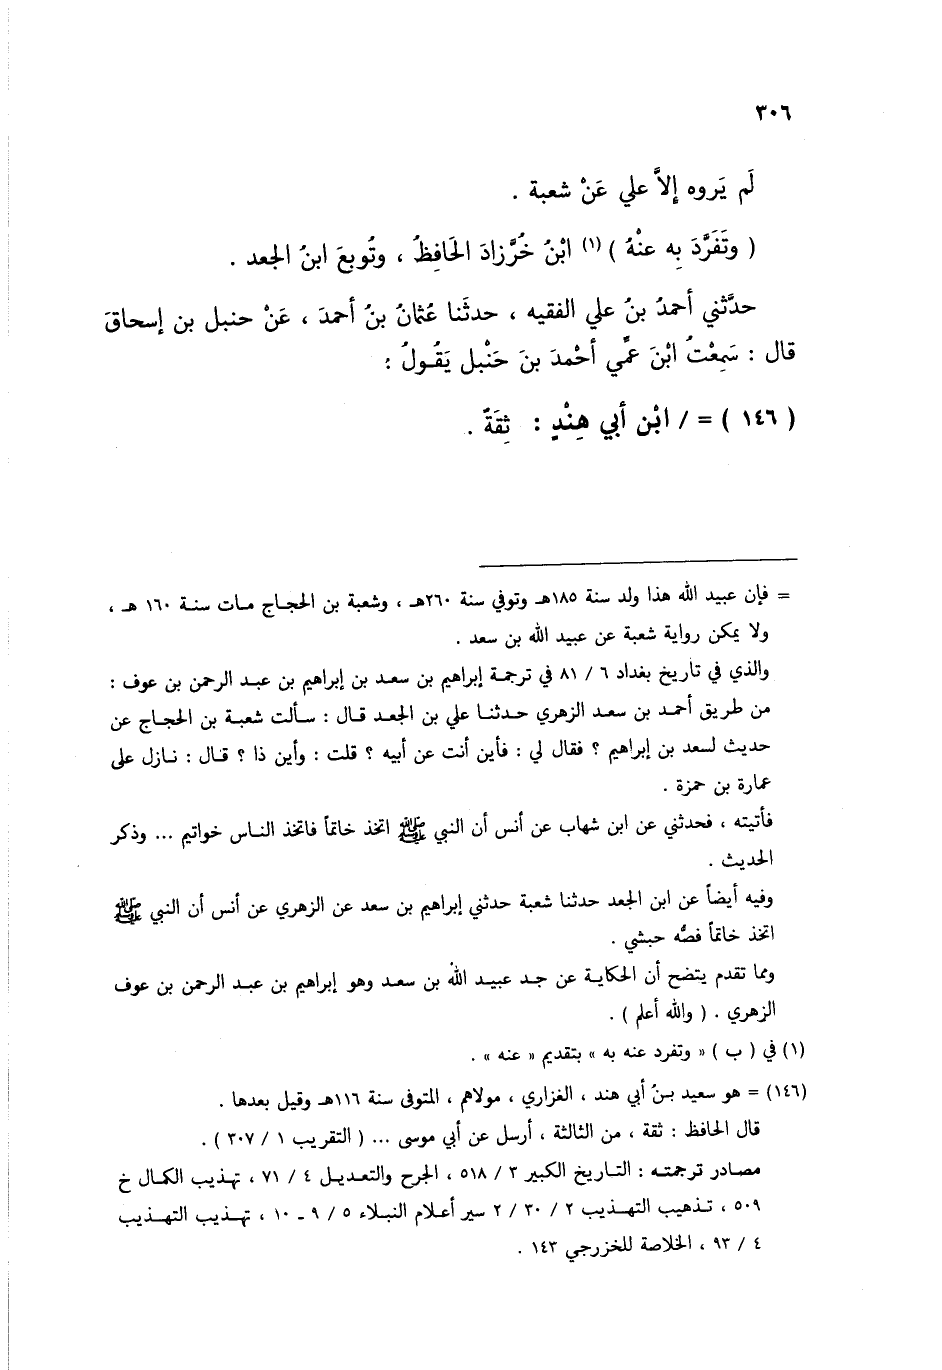 ٣٠٦
لَم يَروه إلاَّ علي عَنْ شعبة .
( وتَفَرَّدَ بِه عنْهُ )(١) ابْنُ خُرَّزادَ الحَافِظُ ، وتُوبعَ ابنُ الجعد .
حدَّثني أحمدُ بنُ علي الفقيه ، حدثَنا عُثمانُ بنُ أحمدَ ، عَنْ حنبل بن إسحاقَ
قال : سَمِعْتُ ابْنَ عمِّي أحْمدَ بنَ حَنْبل يَقُولُ :
( ١٤٦ ) = / ابْن أبي هِنْدٍ : ثِقَةٌ .
= فإن عبيد الله هذا ولد سنة ١٨٥هـ وتوفي سنة ٢٦٠هـ ، وشعبة بن الحجاج مات سنة ١٦٠ هـ ،
ولا يمكن رواية شعبة عن عبيد الله بن سعد .
والذي في تاريخ بغداد ٦ / ٨١ في ترجمة إبراهيم بن سعد بن إبراهيم بن عبد الرحمن بن عوف :
من طريق أحمد بن سعد الزهري حدثنا علي بن الجعد قال : سألت شعبة بن الحجاج عن
حديث لسعد بن إبراهيم ؟ فقال لي : فأين أنت عن أبيه ؟ قلت : وأين ذا ؟ قال : نازل على
عمارة بن حمزة .
فأتيته ، فحدثني عن ابن شهاب عن أنس أن النبي ﷺ اتخذ خاتماً فاتخذ الناس خواتيم ... وذكر
الحديث .
وفيه أيضاً عن ابن الجعد حدثنا شعبة حدثني إبراهيم بن سعد عن الزهري عن أنس أن النبي ﷺ
اتخذ خاتماً فصُّه حبشي .
ومما تقدم يتضح أن الحكاية عن جد عبيد الله بن سعد وهو إبراهيم بن عبد الرحمن بن عوف
الزهري . ( والله أعلم ) .
(١) في ( ب ) « وتفرد عنه به » بتقديم « عنه » .
(١٤٦) = هو سعيد بنُ أبي هند ، الفزاري ، مولاهم ، المتوفى سنة ١١٦هـ وقيل بعدها .
قال الحافظ : ثقة ، من الثالثة ، أرسل عن أبي موسى ... ( التقريب ١ / ٣٠٧ ) .
مصادر ترجمته : التاريخ الكبير ٣ / ٥١٨ ، الجرح والتعديل ٤ / ٧١ ، تهذيب الكمال خ
٥٠٩ ، تذهيب التهذيب ٢ / ٣٠ / ٢ سير أعلام النبلاء ٥ / ٩ ـ ١٠ ، تهذيب التهذيب
٤ / ٩٣ ، الخلاصة للخزرجي ١٤٣ .